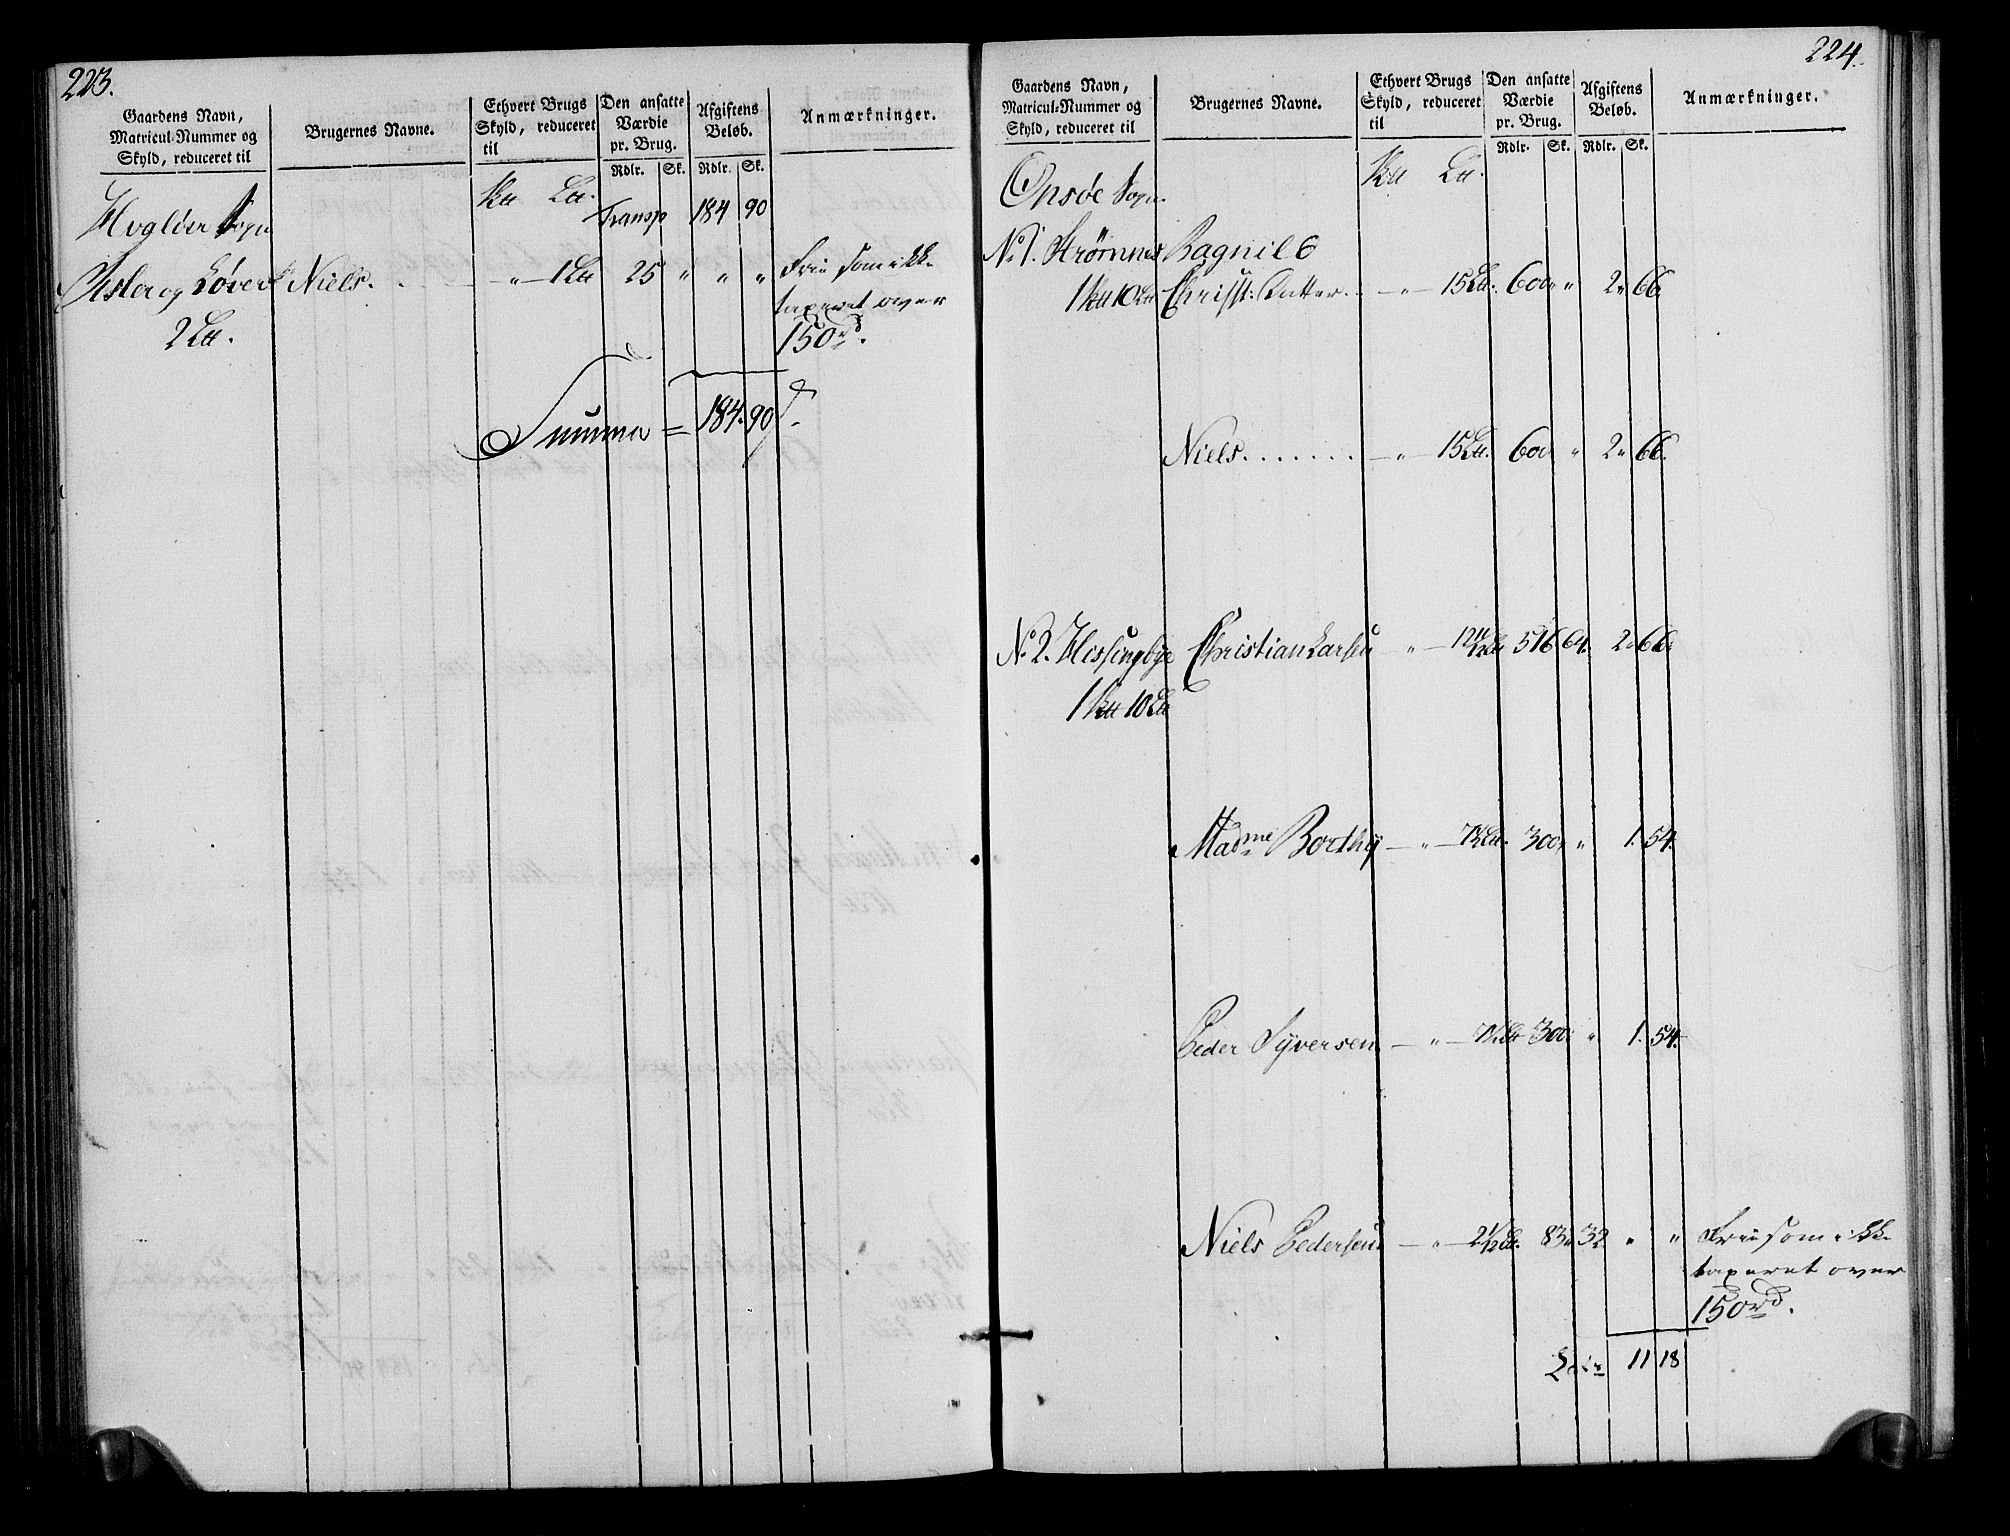 223.
Gaardens Navn,
Matricul-Nummer og
Skyld, reduceret til
Brugernes Navne.
Ethvert Brugs
Skyld, reduceret
til
Den ansatte
Værdie
pr. Brug.
Rdlr. Sk.
Afgiftens
Beløb.
Rdlr. Sk.
Anmærkninger.
Sogn Transp 184 90
og Niels. " 1 25 " " " Frie som ikke
2 taxeret over
150rd.
Summa = 184. 90
224.
Gaardens Navn,
Matricul-Nummer og
Skyld, reduceret til
Brugernes Navne.
Ethvert Brugs
Skyld, reduceret
til
Den ansatte
Værdie
pr. Brug.
Rdlr. Sk.
Afgiftens
Beløb.
Rdlr. Sk.
Anmærkninger.
Onsøe Sogn.
No 1. Strømnes Ragnild
1 10 Christ: — " — 15 600 " 2 " 66.
Niels. . . . . . . — " — 15 600 " 2 " 66.
No 2. Christian Larsen — " — 516 64. 2 " 66.
1 10
Madme Borthy — " — 300 " 1. 54.
Peder Syversen — " — 300 " 1. 54.
Niels Pedersen — " — 2 1/2 83 " 32 " " Frie som ikke
taxeret over
150rd.
11 18